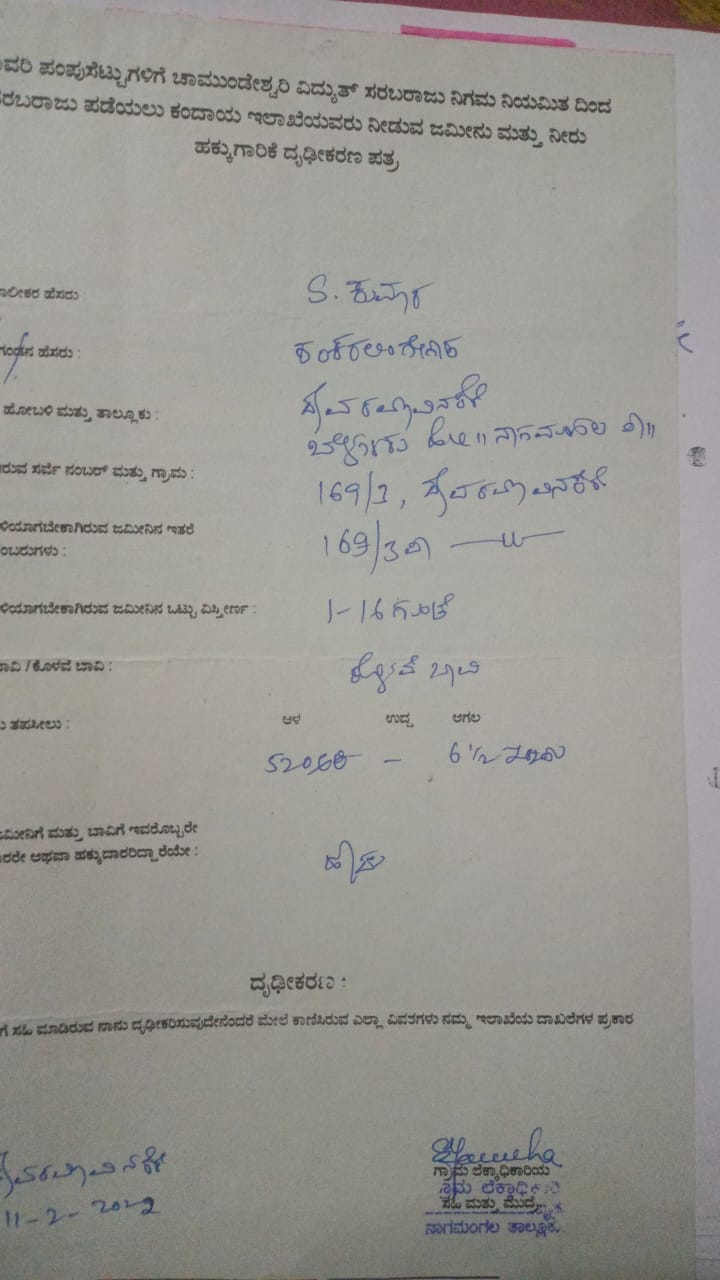 ಪಂಪುಸೆಟ್ಟುಗಳಿಗೆ ಚಾಮುಂಡೇಶ್ವರಿ ವಿದ್ಯುತ್ ಸರಬರಾಜು ನಿಗಮ ನಿಯಮಿತ ದಿಂದ
ರಬರಾಜು ಪಡೆಯಲು ಕಂದಾಯ ಇಲಾಖೆಯವರು ನೀಡುವ ಜಮೀನು ಮತ್ತು ನೀರು
ಹಕ್ಕುಗಾರಿಕೆ ದೃಢೀಕರಣ ಪತ್ರ
ಾಲೀಕರ ಹೆಸರು : S. ಕುಮಾರ
ಗಂಡನ ಹೆಸರು :
ಹೋಬಳಿ ಮತ್ತು ತಾಲ್ಲೂಕು :
ಬೆಳ್ಳೂರು ಹೋ|| ನಾಗಮಂಗಲ ತಾ||
ರುವ ಸರ್ವೆ ನಂಬರ್ ಮತ್ತು ಗ್ರಾಮ : 169/3,
ಳಿಯಾಗಬೇಕಾಗಿರುವ ಜಮೀನಿನ ಇತರೆ
ಂಬರುಗಳು :
ಳಿಯಾಗಬೇಕಾಗಿರುವ ಜಮೀನಿನ ಒಟ್ಟು ವಿಸ್ತೀರ್ಣ : 1-16 ಗುಂಟೆ
ಾವಿ / ಕೊಳವೆ ಬಾವಿ : ಕೊಳವೆ ಬಾವಿ
ತಪಸೀಲು : ಆಳ ಉದ್ದ ಅಗಲ
520 ಅಡಿ – 6 1/2
ಜಮೀನಿಗೆ ಮತ್ತು ಬಾವಿಗೆ ಇವರೊಬ್ಬರೇ
ಾರರೇ ಅಥವಾ ಹಕ್ಕುದಾರರಿದ್ದಾರೆಯೇ : ಹೌದು
ದೃಢೀಕರಣ :
ಗೆ ಸಹಿ ಮಾಡಿರುವ ನಾನು ದೃಢೀಕರಿಸುವುದೇನೆಂದರೆ ಮೇಲೆ ಕಾಣಿಸಿರುವ ಎಲ್ಲಾ ವಿವರಗಳು ನಮ್ಮ ಇಲಾಖೆಯ ದಾಖಲೆಗಳ ಪ್ರಕಾರ
11-2-2022
ಗ್ರಾಮ ಲೆಕ್ಕಾಧಿಕಾರಿಯ
ಗ್ರಾಮ ಲೆಕ್ಕಾಧಿಕಾರಿ
ಸಹಿ ಮತ್ತು ಮೊಹರು
ನಾಗಮಂಗಲ ತಾಲ್ಲೂಕು